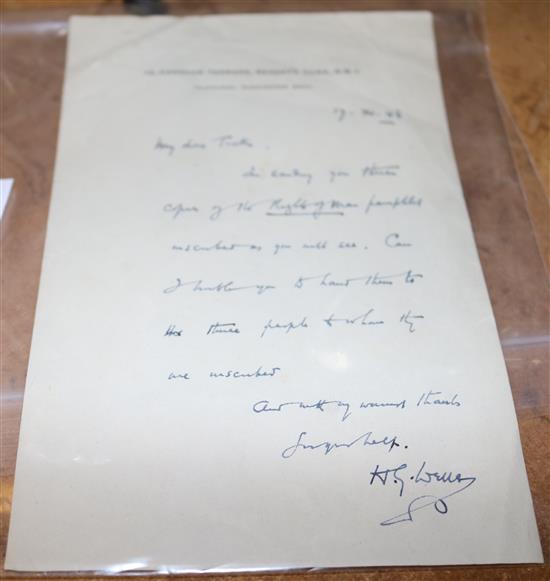 13, HANOVER TERRACE, REGENT'S PARK, N.W.1
My dear
I'm sending you three
copies of the Rights of Man pamphlet
inscribed as you will see. Can
I trouble you to hand them to
the three people to whom they
are inscribed
And with my warmest thanks
for your help.
H.G. Wells